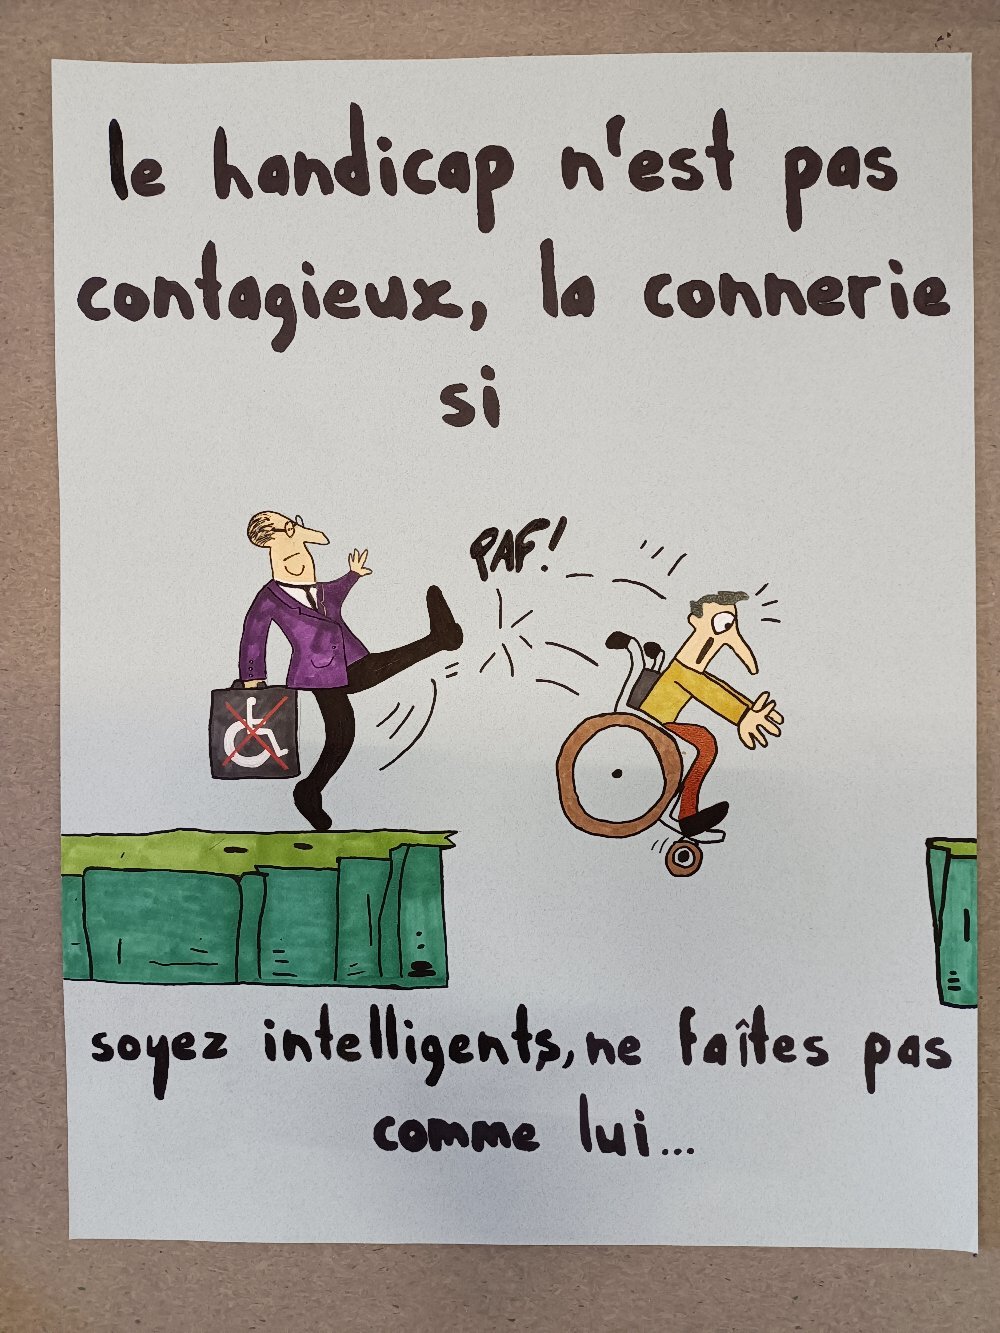 le handicap n'est pas
contagieux, la connerie
si
PAF!
soyez intelligents, ne faîtes pas
comme lui...